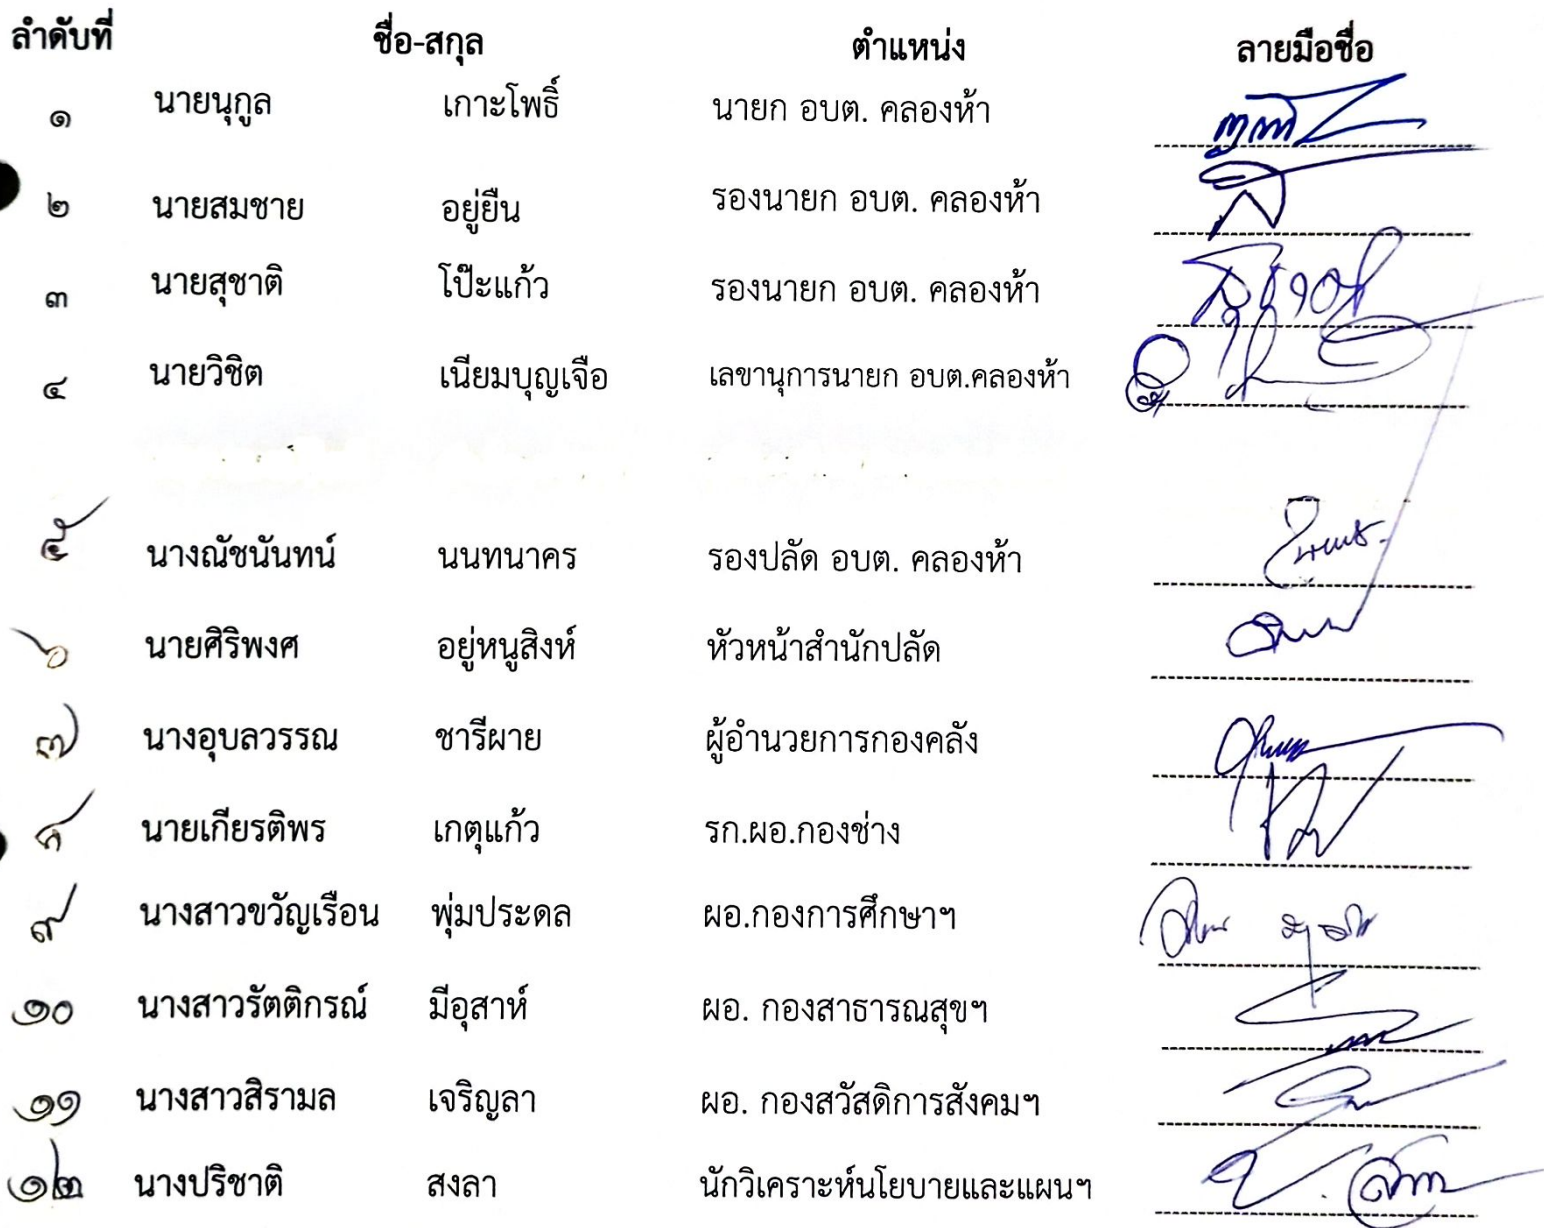 ลำดับที่ ชื่อ-สกุล ตำแหน่ง ลายมือชื่อ
๑ นายนุกูล เกาะโพธิ์ นายก อบต. คลองห้า
๒ นายสมชาย อยู่ยืน รองนายก อบต. คลองห้า
๓ นายสุชาติ โป๊ะแก้ว รองนายก อบต. คลองห้า
๔ นายวิชิต เนียมบุญเจือ เลขานุการนายก อบต.คลองห้า
๕ นางณัชนันทน์ นนทนาคร รองปลัด อบต. คลองห้า
๖ นายศิริพงศ อยู่หนูสิงห์ หัวหน้าสำนักปลัด
๗ นางอุบลวรรณ ชารีผาย ผู้อำนวยการกองคลัง
๘ นายเกียรติพร เกตุแก้ว รก.ผอ.กองช่าง
๙ นางสาวขวัญเรือน พุ่มประดล ผอ.กองการศึกษาฯ
๑๐ นางสาวรัตติกรณ์ มีอุสาห์ ผอ. กองสาธารณสุขฯ
๑๑ นางสาวสิรามล เจริญลา ผอ. กองสวัสดิการสังคมฯ
๑๒ นางปริชาติ สงลา นักวิเคราะห์นโยบายและแผนฯ